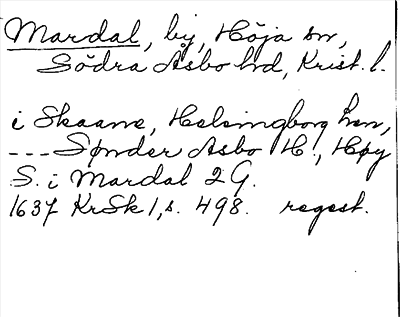 Mardal, by, Höja sn,
Södra Åsbo hrd, Krist. l.
i Skaane, Helsingborg Len,
--- Sønder Asbo H., Høy
S. i Mardal 2 G.
1637 KrSk 1, s. 498. regest.